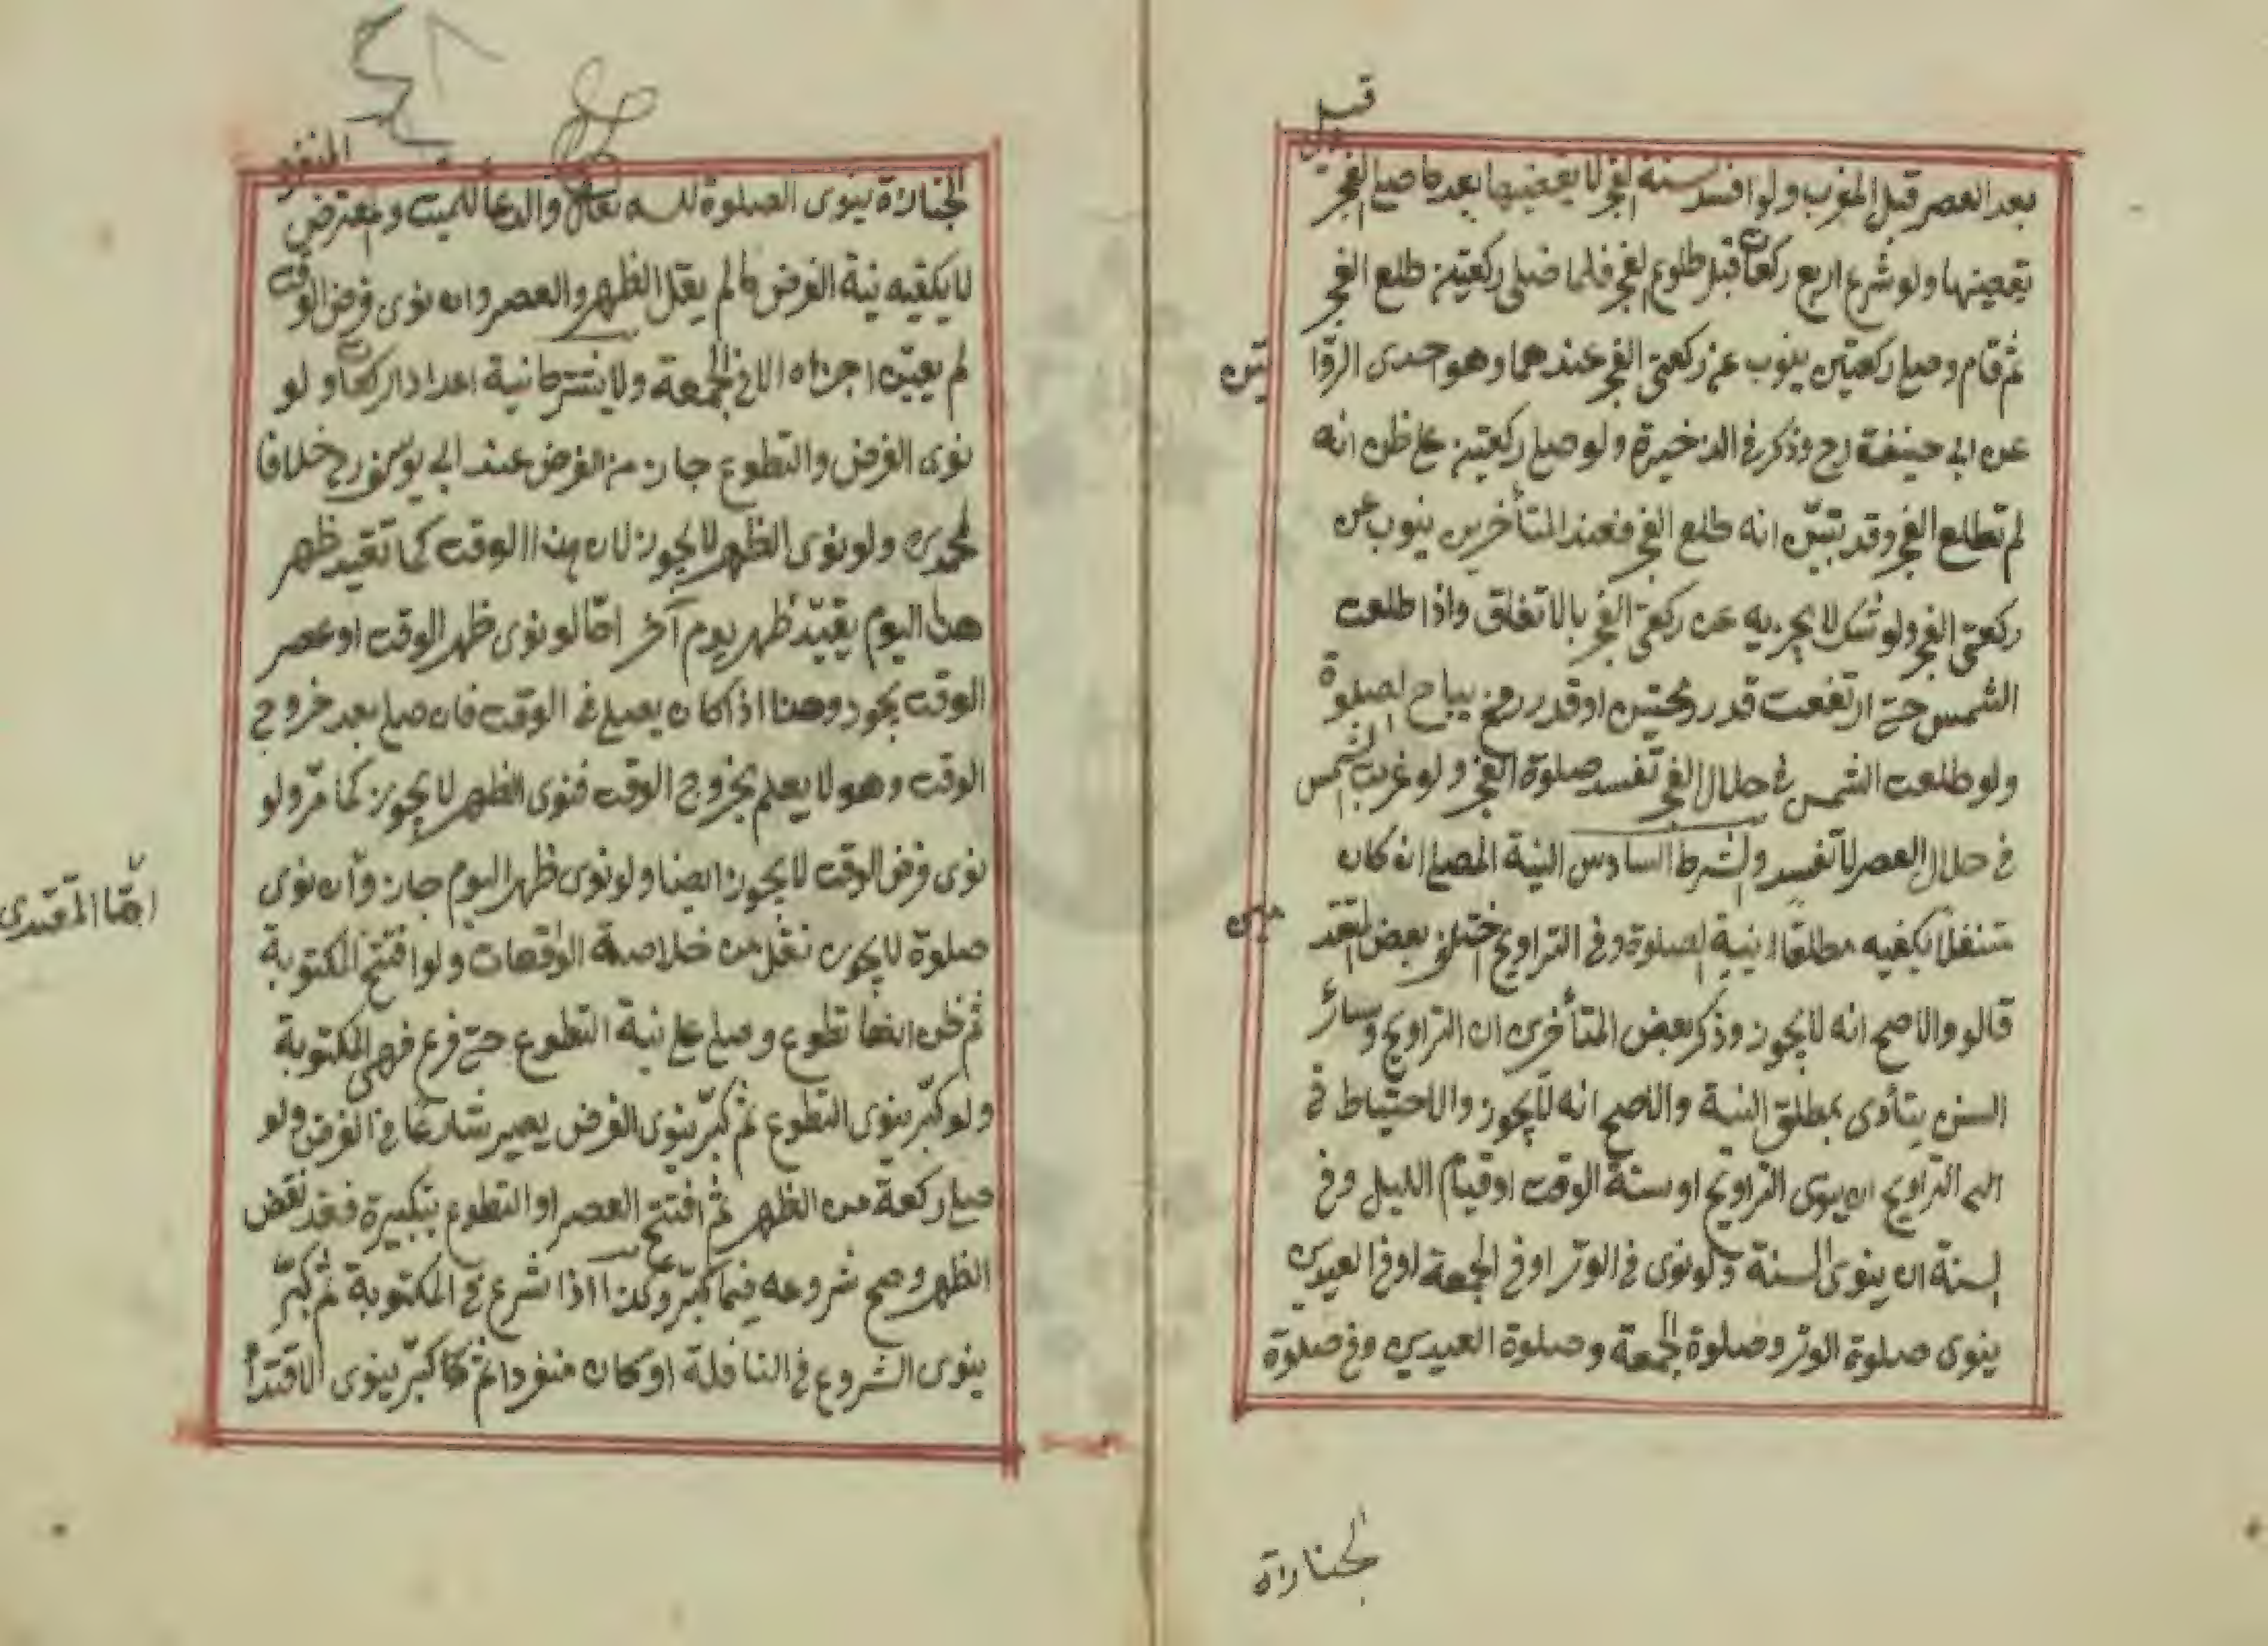 قبيل
بعد العصر قبل المغرب ولو افسد سنة الفجر لا يقضيها بعد ما صلى الفجر
يقضيها ولو شرع اربع ركعات قبل طلوع الفجر فلما صلى ركعتين طلع الفجر
ثم قام وصلى ركعتين ينوب عن ركعتى الفجر عندهما وهو احدى الروا
يتين
عن ابى حنيفة رح وذكر فى الذخيرة ولو صلى ركعتين على ظن انه
لم تطلع الفجر وقد تبيّن انه طلع الفجر فعند المتأخرين ينوب عن
ركعتى الفجر ولو شك لا يجزيه عن ركعتى الفجر بالاتفاق واذا طلعت
الشمس حتى ارتفعت قدر رمحين او قدر رمح يباح الصلوة
ولو طلعت الشمس فى خلال الفجر تفسد صلوة الفجر ولو غربت الشمس
فى خلال العصر لا تفسد والشرط السادس النية المصلى ان كان
متنفلا يكفيه مطلقا نية الصلوة وفى التراويح اختلف بعض المتقد
مين
قالو والاصح انه لا يجوز وذكر بعض المتأخرين ان التراويح وسائر
السنن يتأدى بمطلق النية والاصح انه لا يجوز والاحتياط فى
التراويح ان ينوى التراويح او سنة الوقت او قيام الليل وفى
السنة ان ينوى السنة ولو نوى فى الوتر او فى الجمعة او فى العيدين
ينوى صلوة الوتر وصلوة الجمعة وصلوة العيدين وفى صلوة
الجنازة
المنفرد
الجنازة ينوى الصلوة لله تعالى والدعا للميت والمفترض
لا يكفيه نية الفرض ما لم يقل الظهر والعصر وان نوى فرض الوقت
لم يعيّن اجزاه الا فى الجمعة ولا يشترط نية اعداد الركعات ولو
نوى الفرض والتطوع جاز من الفرض عند ابى يوسف رح خلافا
لمحمد رح ولو نوى الظهر لا يجوز لان هذا الوقت كما تقيد ظهر
هذا اليوم يقيّد ظهر يوم آخر امّا لو نوى ظهر الوقت او عصر
الوقت يجوز وهذا اذا كان يصلى فى الوقت فان صلى بعد خروج
الوقت وهو لا يعلم بخروج الوقت فنوى الظهر لا يجوز كما مرّ ولو
نوى فرض الوقت لا يجوز ايضا ولو نوى ظهر اليوم جاز وان نوى
صلوة لا يجوز نقل من خلاصة الواقعات ولو افتتح المكتوبة
ثم ظن انها تطوع وصلى على نية التطوع حتى فرغ فهى المكتوبة
ولو كبّر ينوى التطوع ثم كبّر ينوى الفرض يصير شارعا فى الفرض ولو
صلى ركعة من الظهر ثم افتتح العصر او التطوع بتكبيرة فقد نقض
الظهر وصح شروعه فيما كبّر وكذا اذا شرع فى المكتوبة ثم كبّر
ينوى الشروع فى النافلة او كان منفردا ثم كبّر ينوى الاقتدا
امّا المقتدى